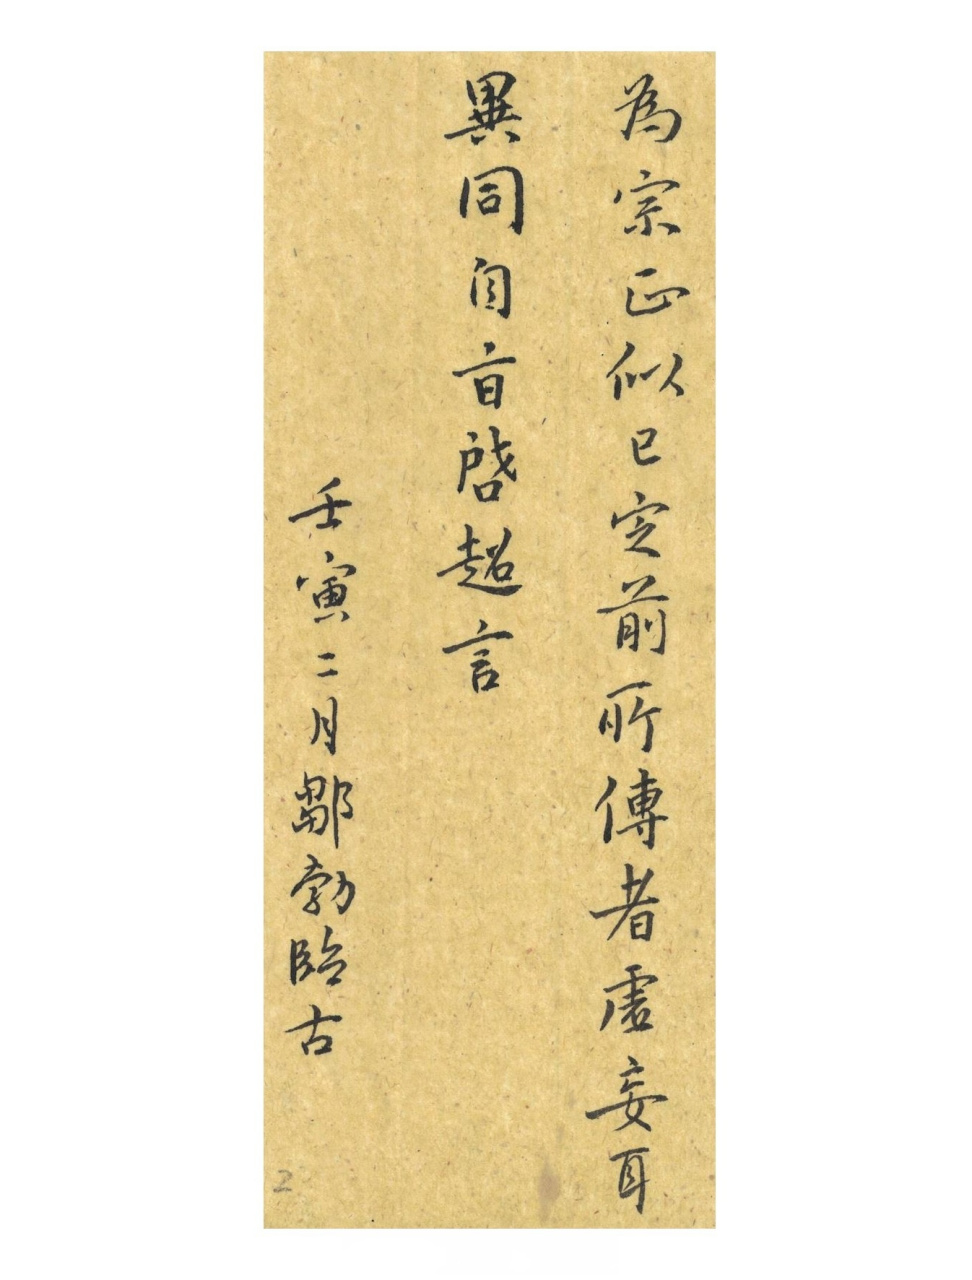 為宗正似已定前所傳者虛妄耳
異同自旨啓超言
壬寅二月鄒勃臨古
2